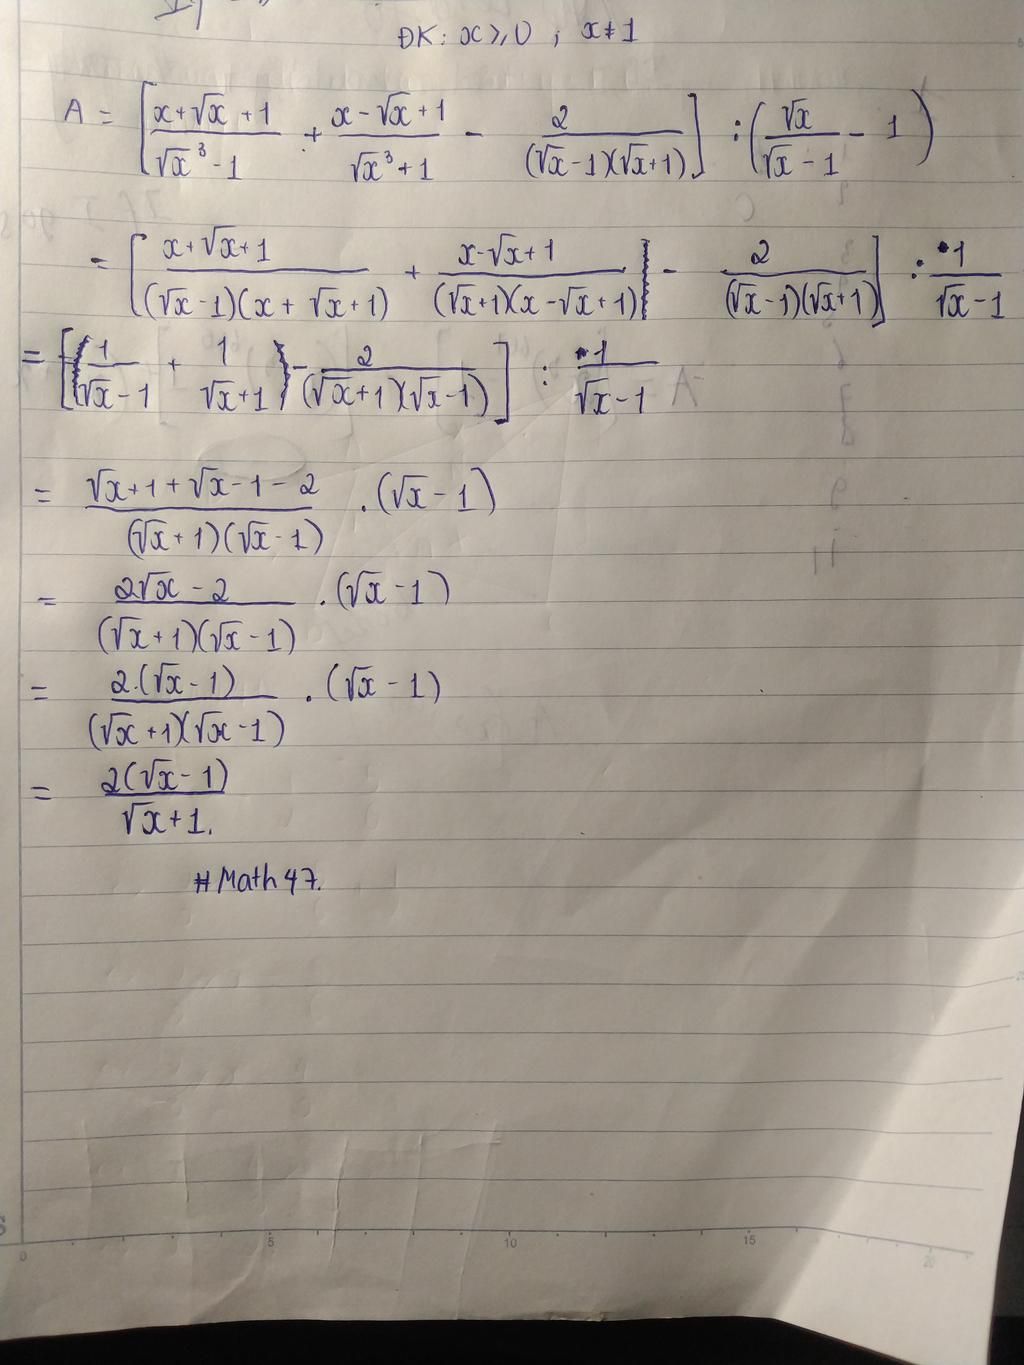 ĐK: x ≥ 0 ; x ≠ 1
A = [(x+√x+1)/(√x³-1) + (x-√x+1)/(√x³+1) - 2/((√x-1)(√x+1))] : (√x/(√x-1) - 1)
= [(x+√x+1)/((√x-1)(x+√x+1)) + (x-√x+1)/((√x+1)(x-√x+1)) - 2/((√x-1)(√x+1))] : 1/(√x-1)
= [1/(√x-1) + 1/(√x+1) - 2/((√x+1)(√x-1))] : 1/(√x-1)
= (√x+1+√x-1-2)/((√x+1)(√x-1)) . (√x-1)
= (2√x-2)/((√x+1)(√x-1)) . (√x-1)
= 2.(√x-1)/((√x+1)(√x-1)) . (√x-1)
= 2(√x-1)/(√x+1).
#Math47.
0 5 10 15 20